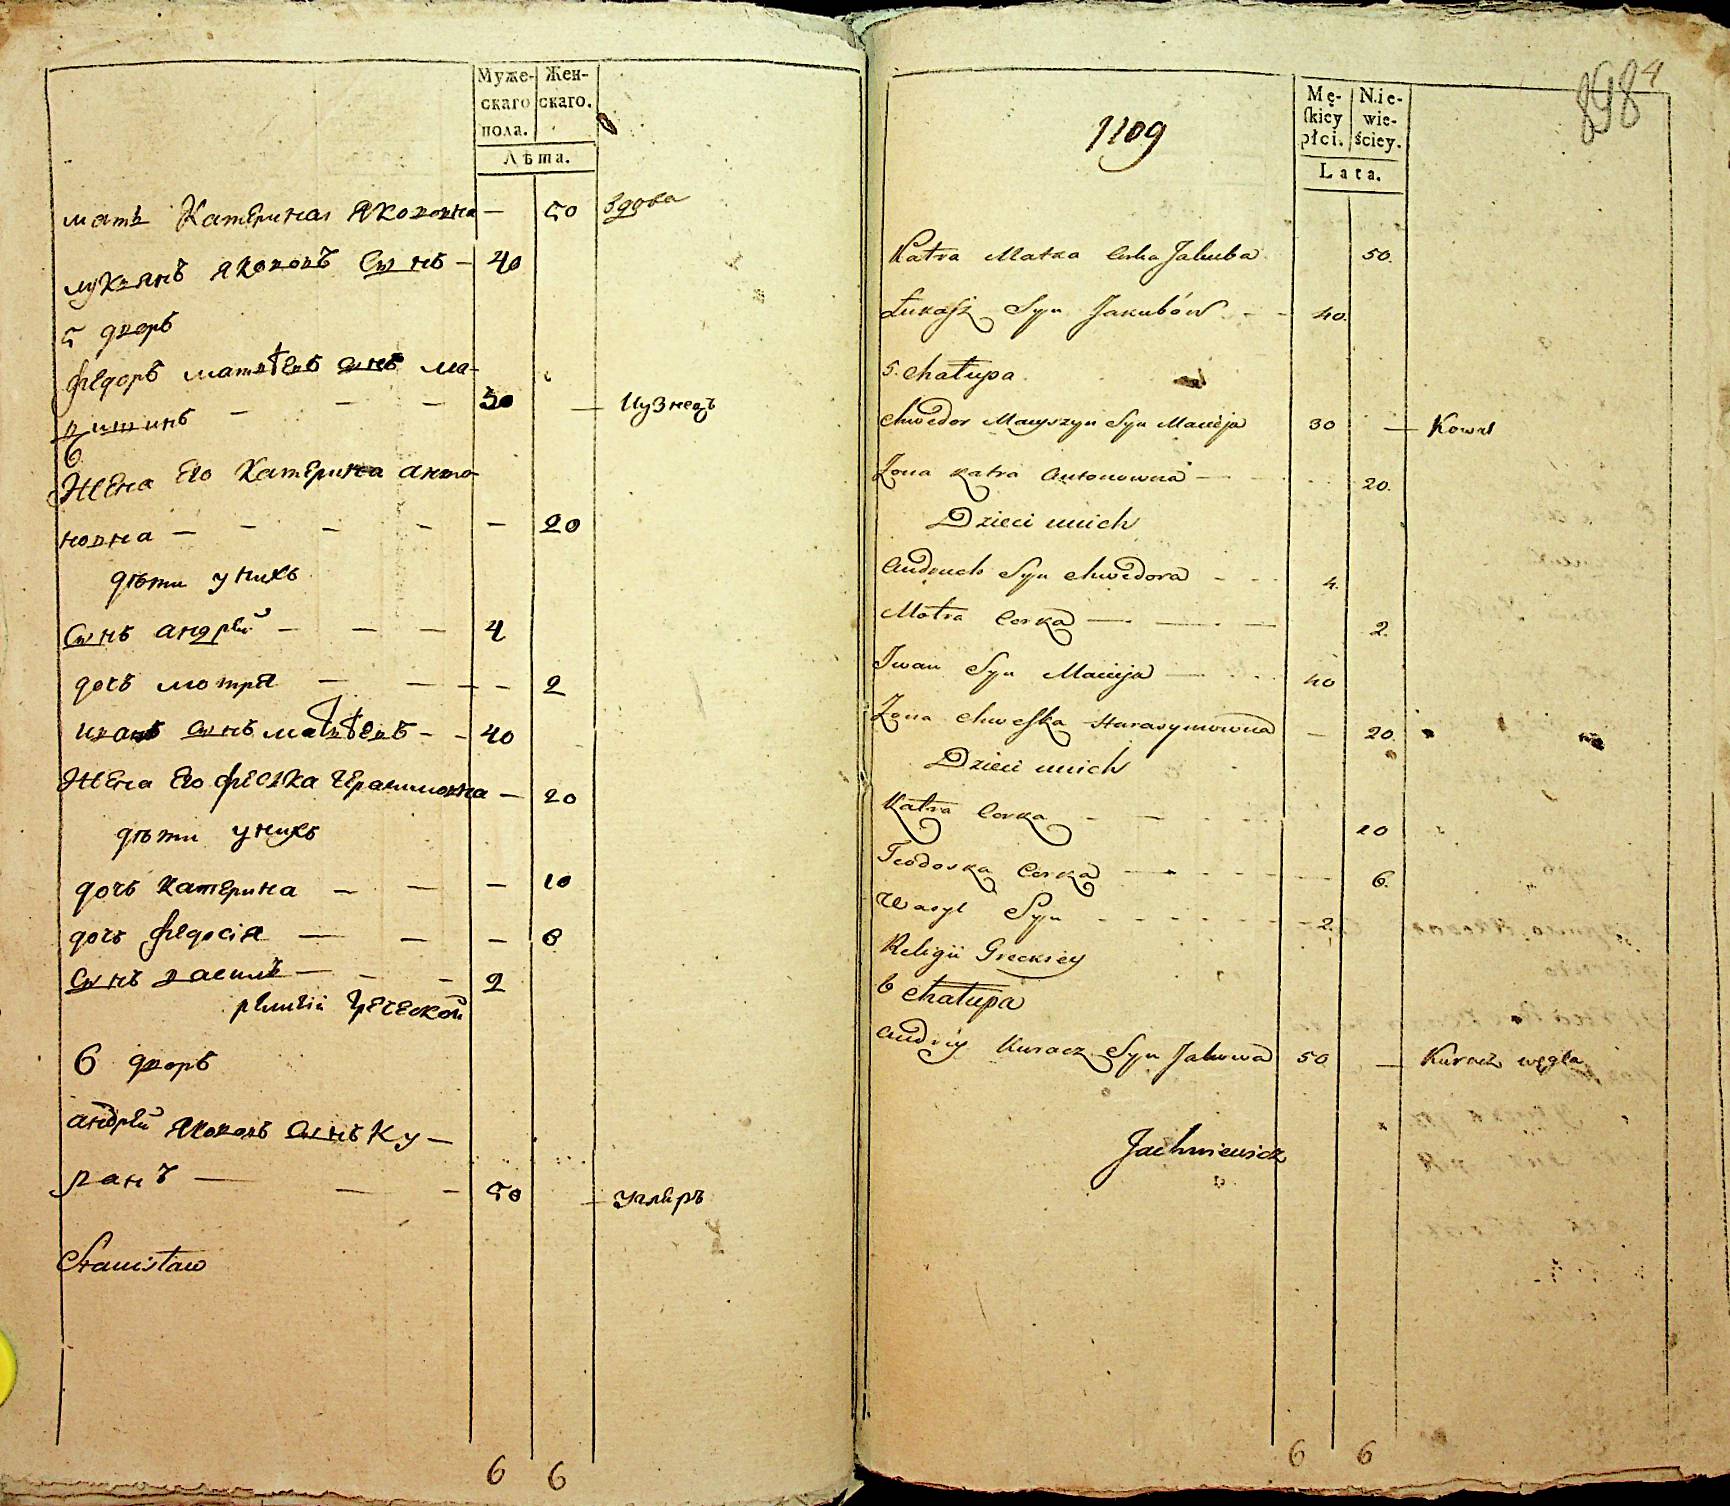 Муже-
скаго
пола.
Жен-
скаго.
Лѣта.
мать Катерина Якововна — 50 вдова
лукянъ якововъ сынъ — 40
5 дворъ
федоръ матвѣевъ сынъ ма-
— — — 30 — кузнецъ
Жена Его Катерина анто-
новна — — — — — 20
дѣти у нихъ
сынъ андрѣй — — — 4
дочь мотря — — — — 2
иванъ сынъ матвѣевъ — — 40
Жена Его феска Герасимовна — 20
дѣти у нихъ
дочь катерина — — — 10
дочь федосія — — — 6
сынъ василь — — — 2
религіи Греческой
6 дворъ
андрѣй якововъ сынъ Ку —
— — — 50 — углярь
Stanisław
6 6
1109
898
4
Mę-
ſkiey
płci.
Nie-
wie-
ściey.
Lata.
Katra Matka Corka Jakuba 50.
Łukasz Syn Jakubów - - 40.
5. Chałupa
Chwedor Maryszyn Syn Macieja 30 — Kowal
Żona Katra Antonowna — 20.
Dzieci unich
Andruch Syn Chwedora - - - 4.
Motra Corka — — — 2.
Iwan Syn Macieja — 40
Żona Chweſka Harasymowna — 20
Dzieci unich
Katra Corka - — - 10
Teodoska Corka — - - — 6.
Wasyl Syn - - - - 2
Religii Greckiey
6 Chałupa
Andriy Kuracz Syn Jakowa 50 — węgla
Jachniewicz
6 6